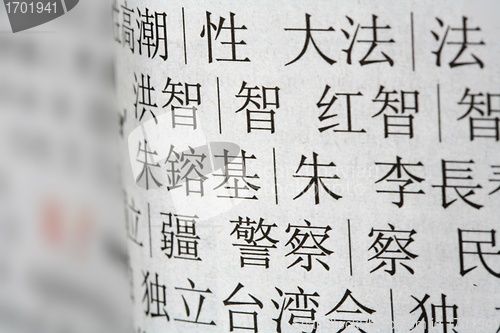 1701941
高潮|性 大法|法
洪智|智 红智|智
朱鎔基|朱 李長春
立|疆 警察|察 民
独立台湾会|独